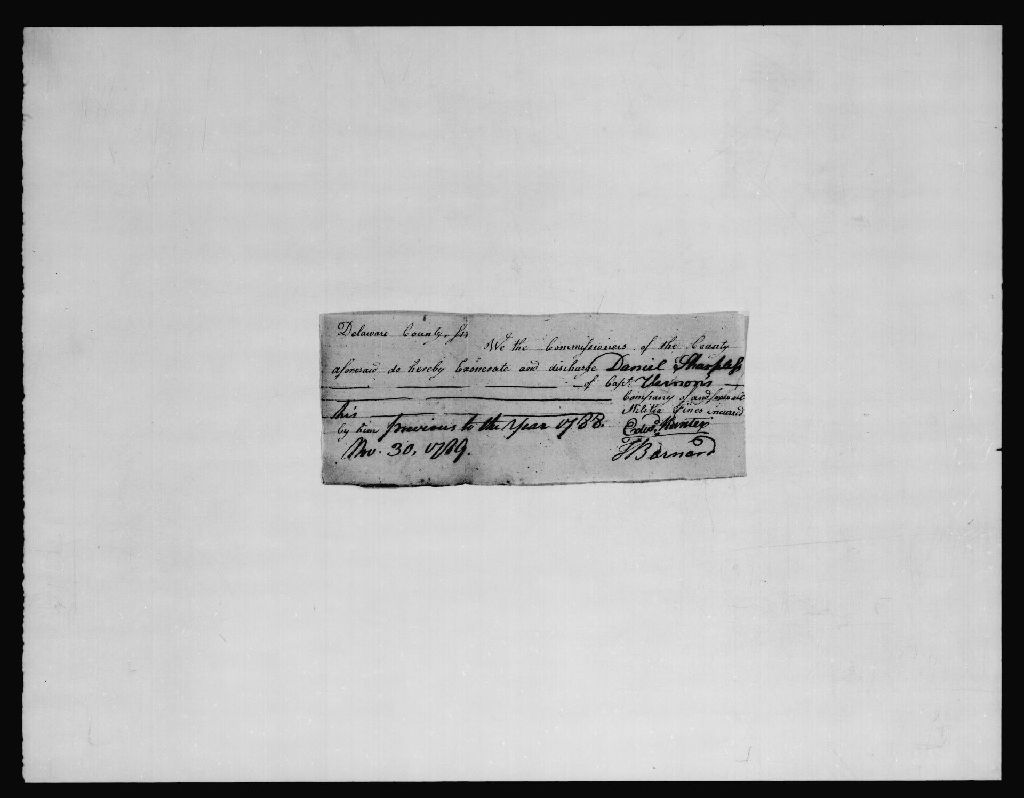 Delaware County, ss
We the Commissioners of the County
aforesaid do hereby Exonerate and discharge Daniel Sharpless
of Capt. Vernons
Company of and from all
this Militia Fines incurred
by him previous to the year 1788.
Edwd. Hunter
Nov. 30, 1789. J Barnard